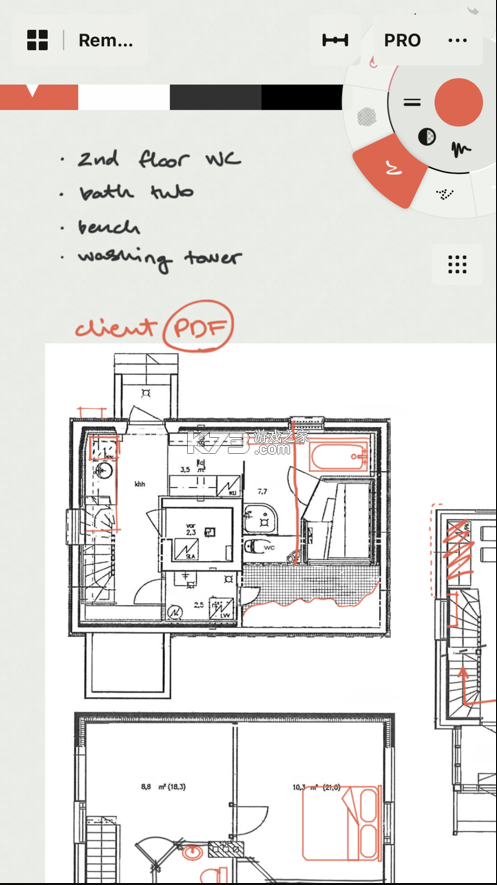 Rem...
PRO
• 2nd floor WC
• bath tub
• bench
• washing tower
client PDF
khh
3,5 m²
KU
7,7
var
2,3
SLA
WC
2,5
LVV
8,8 m² (18,3)
10,3 m² (21,0)
K73 游戏之家
.com